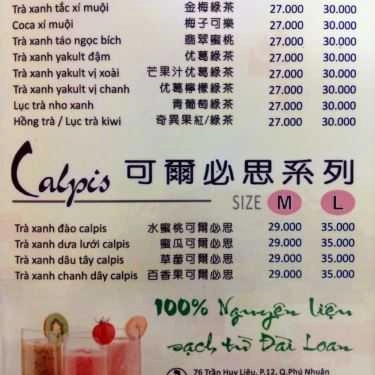 Trà xanh tắc xí muội 金梅綠茶 27.000 30.000
Coca xí muội 梅子可樂 27.000 30.000
Trà xanh táo ngọc bích 翡翠蜜桃 27.000 30.000
Trà xanh yakult đậm 优葛綠茶 27.000 30.000
Trà xanh yakult vị xoài 芒果汁优葛綠茶 27.000 30.000
Trà xanh yakult vị chanh 优葛檸檬綠茶 27.000 30.000
Lục trà nho xanh 青葡萄綠茶 27.000 30.000
Hồng trà / Lục trà kiwi 奇異果紅/綠茶 27.000 30.000
Calpis 可爾必思系列
SIZE M L
Trà xanh đào calpis 水蜜桃可爾必思 29.000 35.000
Trà xanh dưa lưới calpis 蜜瓜可爾必思 29.000 35.000
Trà xanh dâu tây calpis 草莓可爾必思 29.000 35.000
Trà xanh chanh dây calpis 百香果可爾必思 29.000 35.000
100% Nguyên liệu
sạch từ Đài Loan
76 Trần Huy Liệu, P.12, Q.Phú Nhuận